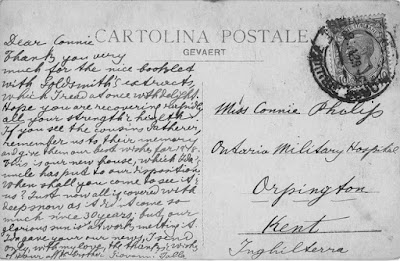 CARTOLINA POSTALE
GEVAERT
Dear Connie
Thank you very
much for the nice booklet
with Goldsmith's extracts,
which I read at once with delight.
Hope you are recovering
all your strength & health.
If you see the cousins
remember us to their memory
and give them our best wishes for
This is our new house, which
uncle has put to our disposition.
When shall you come to see it &
us? Just now all is covered with
deep snow as it did not come so
much since 30 years; but our
glorious sun is at work melting it.
I send
only with my love, the thanks & works
of your
Miss Connie Philip
Ontario Military Hospital
Orpington
Kent
Inghilterra